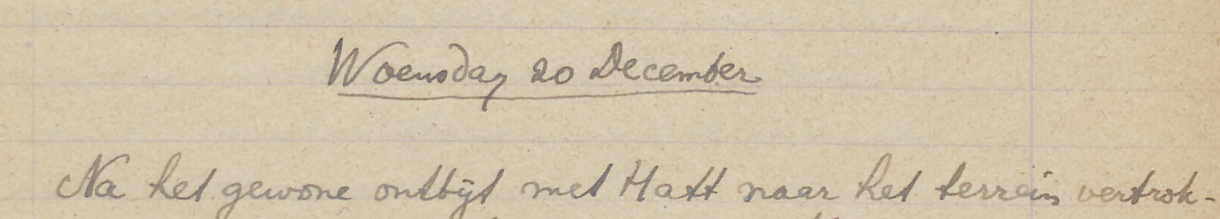 Woensdag 20 December
Na het gewone ontbijt met Hatt naar het terrein vertrok-